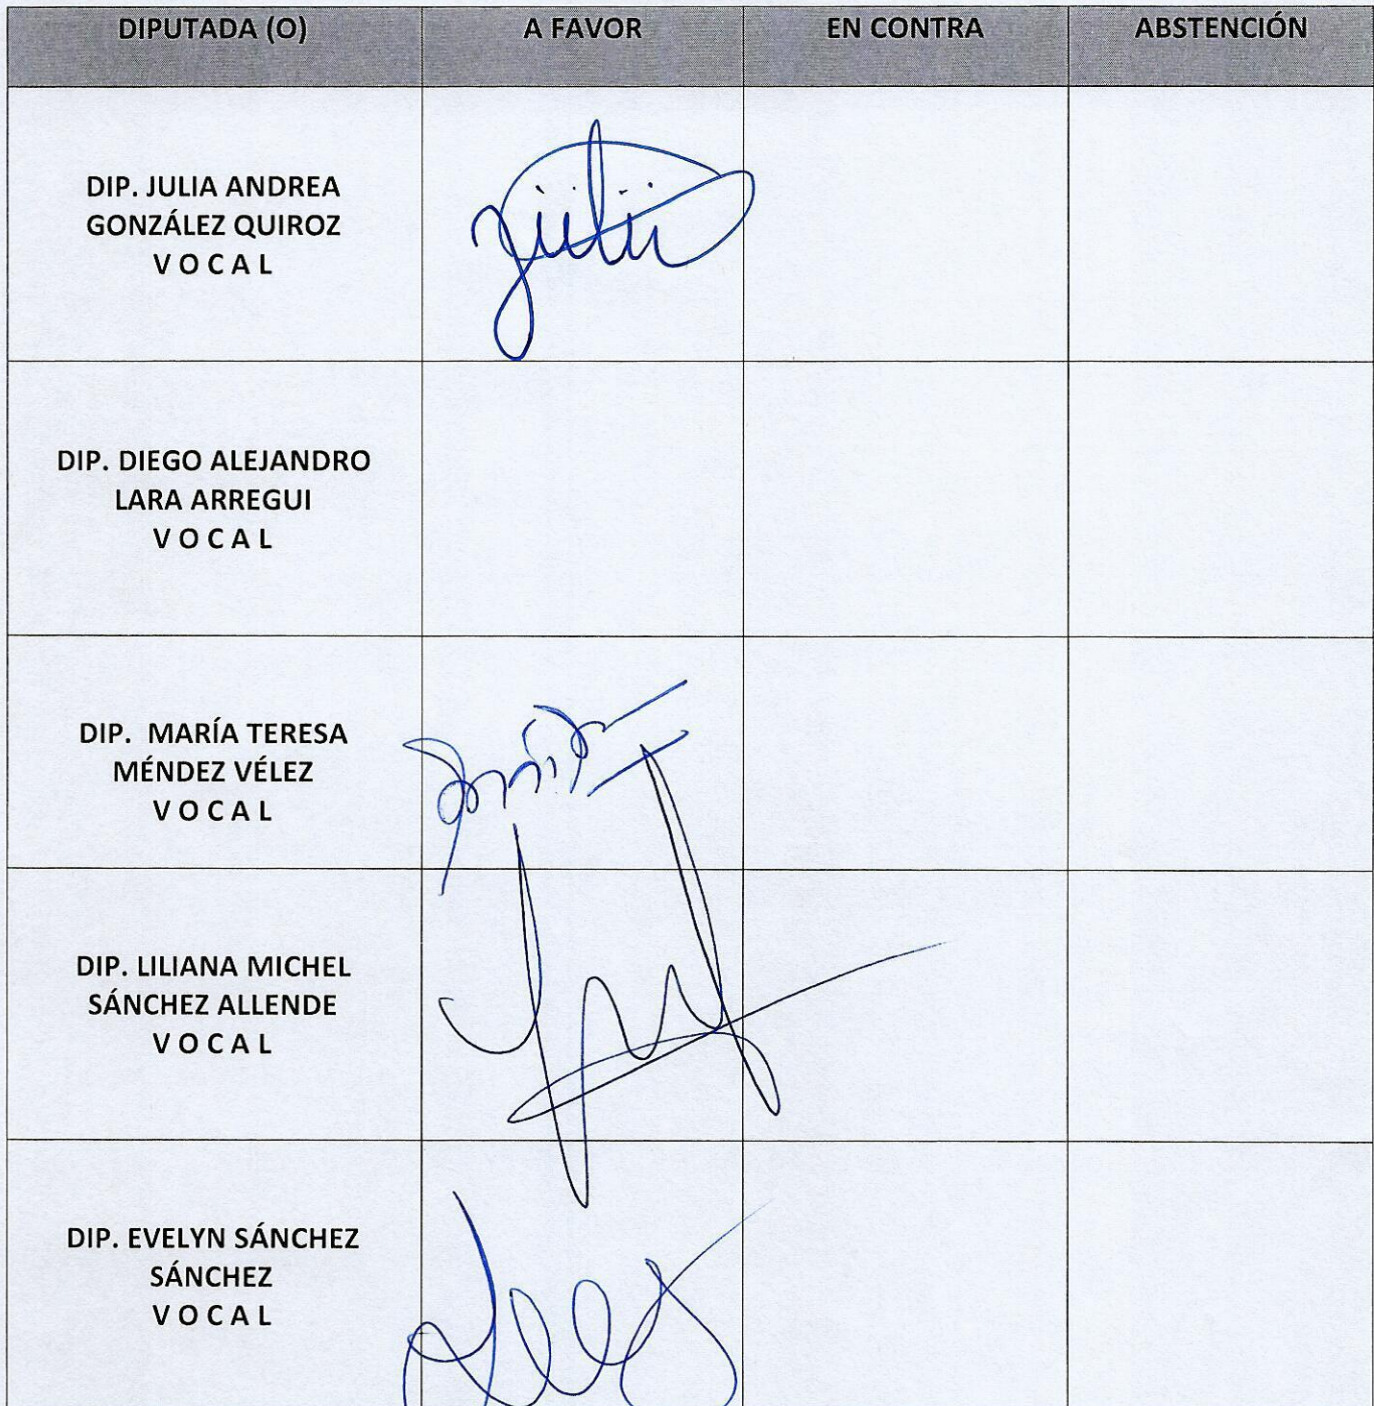 DIPUTADA (O) A FAVOR EN CONTRA ABSTENCIÓN
DIP. JULIA ANDREA
GONZÁLEZ QUIROZ
V O C A L
DIP. DIEGO ALEJANDRO
LARA ARREGUI
V O C A L
DIP. MARÍA TERESA
MÉNDEZ VÉLEZ
V O C A L
DIP. LILIANA MICHEL
SÁNCHEZ ALLENDE
V O C A L
DIP. EVELYN SÁNCHEZ
SÁNCHEZ
V O C A L